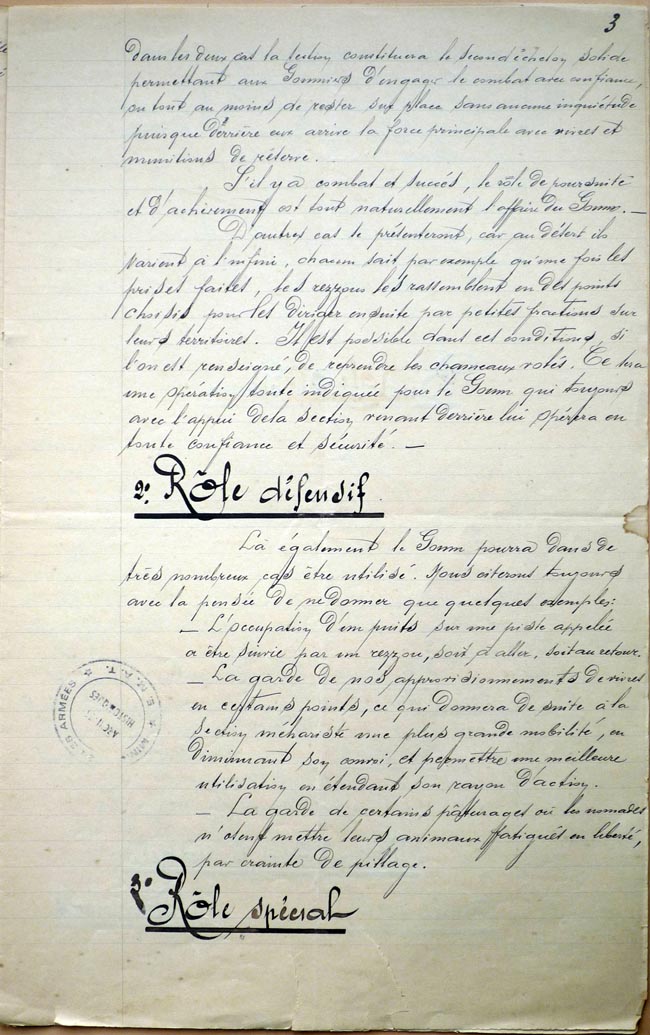 3
Dans les deux cas la section constituera le second échelon solide
permettant aux Goumiers d'engager le combat avec confiance,
ou tout au moins de rester sur place sans aucune inquiétude
puisque derrière eux arrive la force principale avec vivres et
munitions de réserve.
S'il y a combat et succès, le rôle de poursuite
et d'achèvement est tout naturellement l'affaire du Goum. —
D'autres cas se présenteront, car au désert ils
varient à l'infini, chacun sait par exemple qu'une fois les
prises faites, les rezzous se rassemblent en des points
choisis pour se diriger ensuite par petites fractions sur
leurs territoires. Il est possible dans ces conditions, si
l'on est renseigné, de reprendre les chameaux volés. Ce sera
une opération toute indiquée pour le Goum qui toujours
avec l'appui de la section venant derrière lui opérera en
toute confiance et sécurité. —
2º Rôle défensif
Là également le Goum pourra dans de
très nombreux cas être utilisé. Nous citerons toujours
avec la pensée de ne donner que quelques exemples:
— L'occupation d'un puits sur une piste appelée
a être suivie par un rezzou, soit à aller, soit au retour.
— La garde de nos approvisionnements de vivres
en certains points, ce qui donnera de suite à la
section méhariste une plus grande mobilité, en
diminuant son convoi, et permettre une meilleure
utilisation en étendant son rayon d'action.
— La garde de certains pâturages où les nomades
n'osent mettre leurs animaux fatigués en liberté,
par crainte de pillage.
3º Rôle spécial
ARMÉES ★ S.H.A.T. ★
HISTORIQUES